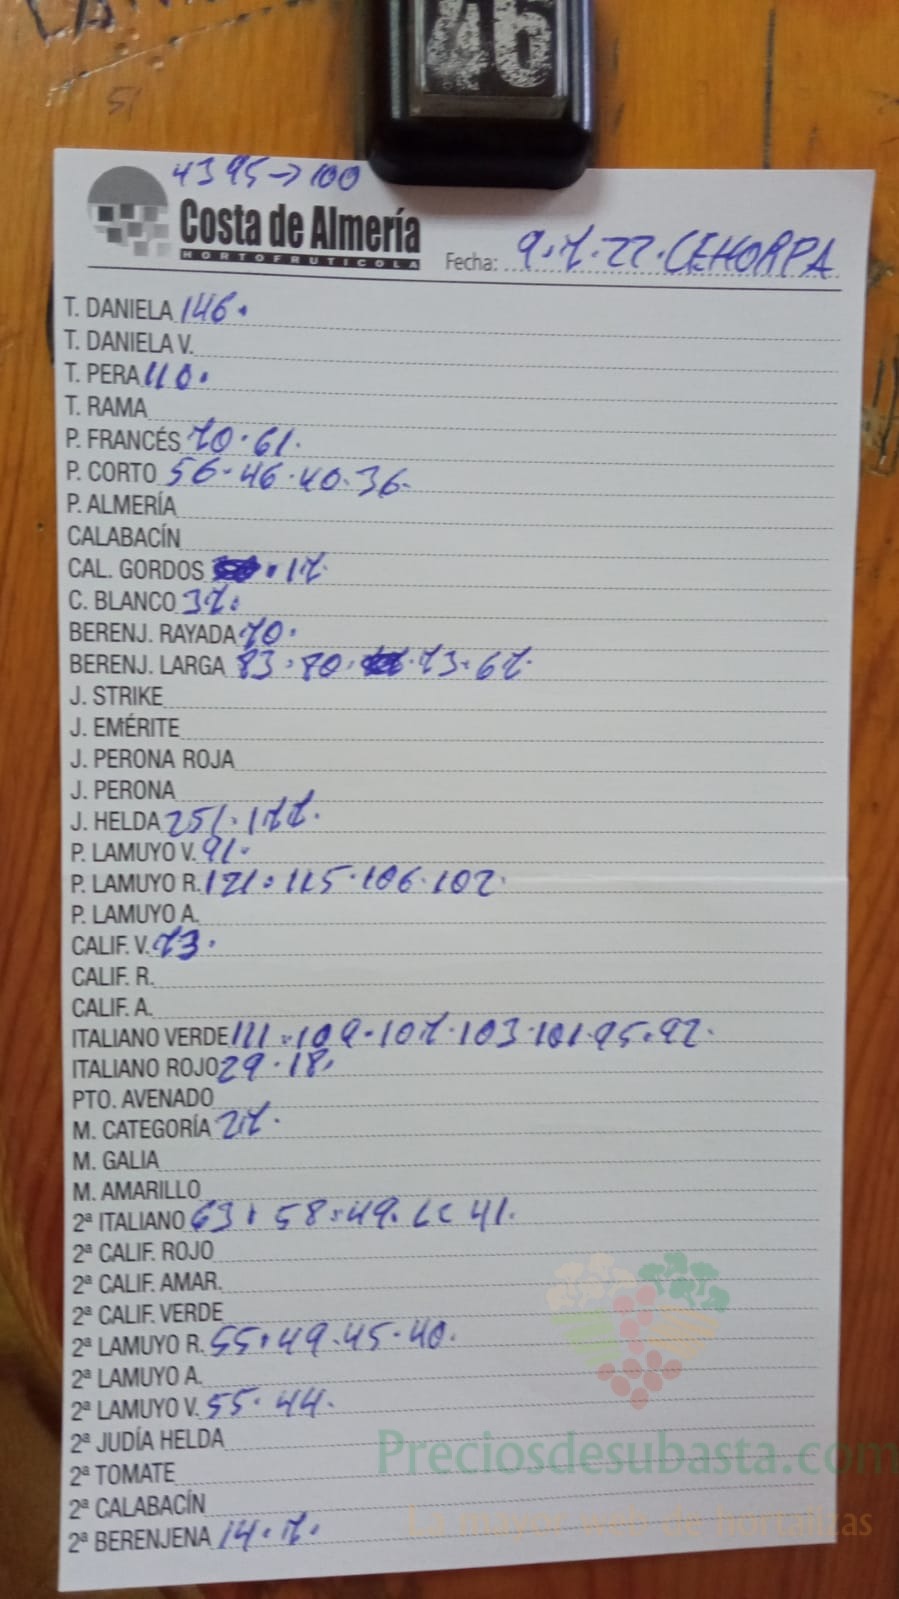 46
51
4395→100
Costa de Almería
HORTOFRUTICOLA
Fecha: 9.7.22. CEHORPA
T. DANIELA 146.
T. DANIELA V.
T. PERA 110.
T. RAMA
P. FRANCÉS 70.61.
P. CORTO 56.46.40.36.
P. ALMERÍA
CALABACÍN
CAL. GORDOS .17.
C. BLANCO 37.
BERENJ. RAYADA 70.
BERENJ. LARGA 83.80. .73.67.
J. STRIKE
J. EMÉRITE
J. PERONA ROJA
J. PERONA
J. HELDA 251.177.
P. LAMUYO V. 91.
P. LAMUYO R. 121.115.106.102.
P. LAMUYO A.
CALIF. V. 73.
CALIF. R.
CALIF. A.
ITALIANO VERDE 111.109.107.103.101.95.92.
ITALIANO ROJO 29.18.
PTO. AVENADO
M. CATEGORÍA 27.
M. GALIA
M. AMARILLO
2ª ITALIANO 63.58.49. 41.
2ª CALIF. ROJO
2ª CALIF. AMAR.
2ª CALIF. VERDE
2ª LAMUYO R. 55.49.45.40.
2ª LAMUYO A.
2ª LAMUYO V. 55.44.
2ª JUDÍA HELDA
2ª TOMATE
2ª CALABACÍN
2ª BERENJENA 14.7.
Preciosdesubasta.com
La mayor web de hortalizas